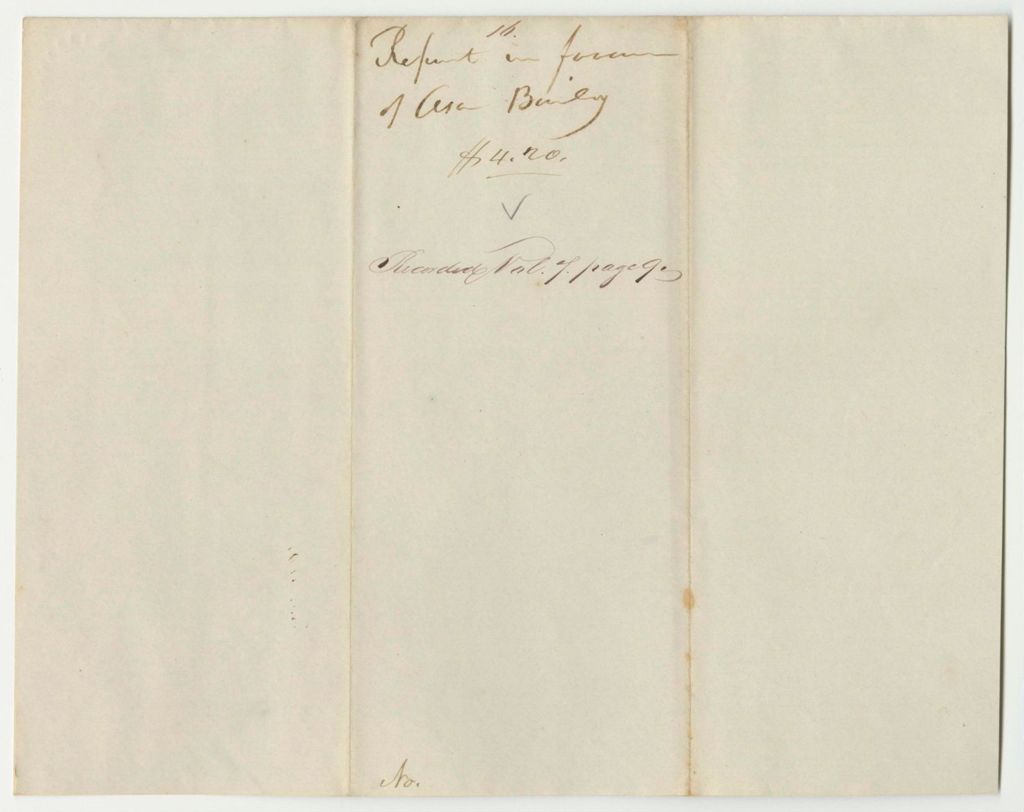 16.
Report in favour
of Asa Bailey
$4.20.
Recorded Vol. 7. page 9.
No.